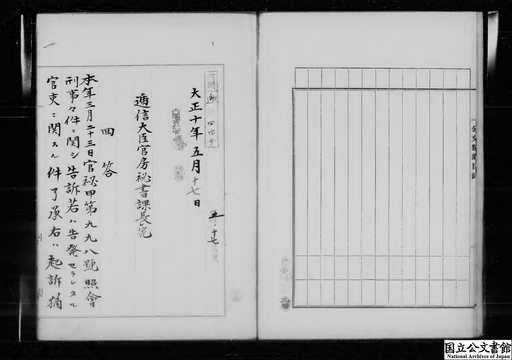 大正十年五月十七日
逓信大臣官房秘書課長宛
回答
本年三月二十三日官秘甲第九九八號照會
刑事々件ニ関シ告訴若ハ告発セラレタル
官吏ニ関スル件了承右ハ起訴猶
国立公文書館
National Archives of Japan